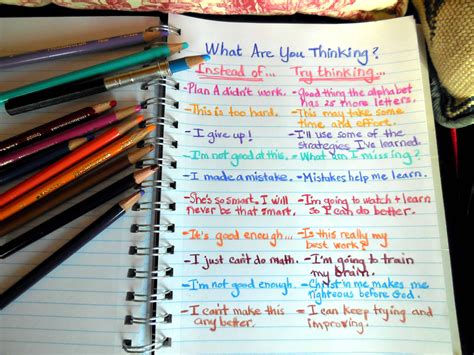 What Are You Thinking?
Instead of... Try thinking...
-Plan A didn't work. -Good thing the alphabet
has 25 more letters.
-This is too hard. -This may take some
time and effort.
-I give up! -I'll use some of the
strategies I've learned.
-I'm not good at this. -What am I missing?
-I made a mistake. -Mistakes help me learn.
-She's so smart. I will -I'm going to watch + learn
never be that smart. so I can do better.
-It's good enough... -Is this really my
best work?
-I just can't do math. -I'm going to train
my brain.
-I'm not good enough. -Christ in me makes me
righteous before God.
-I can't make this -I can keep trying and
any better. improving.